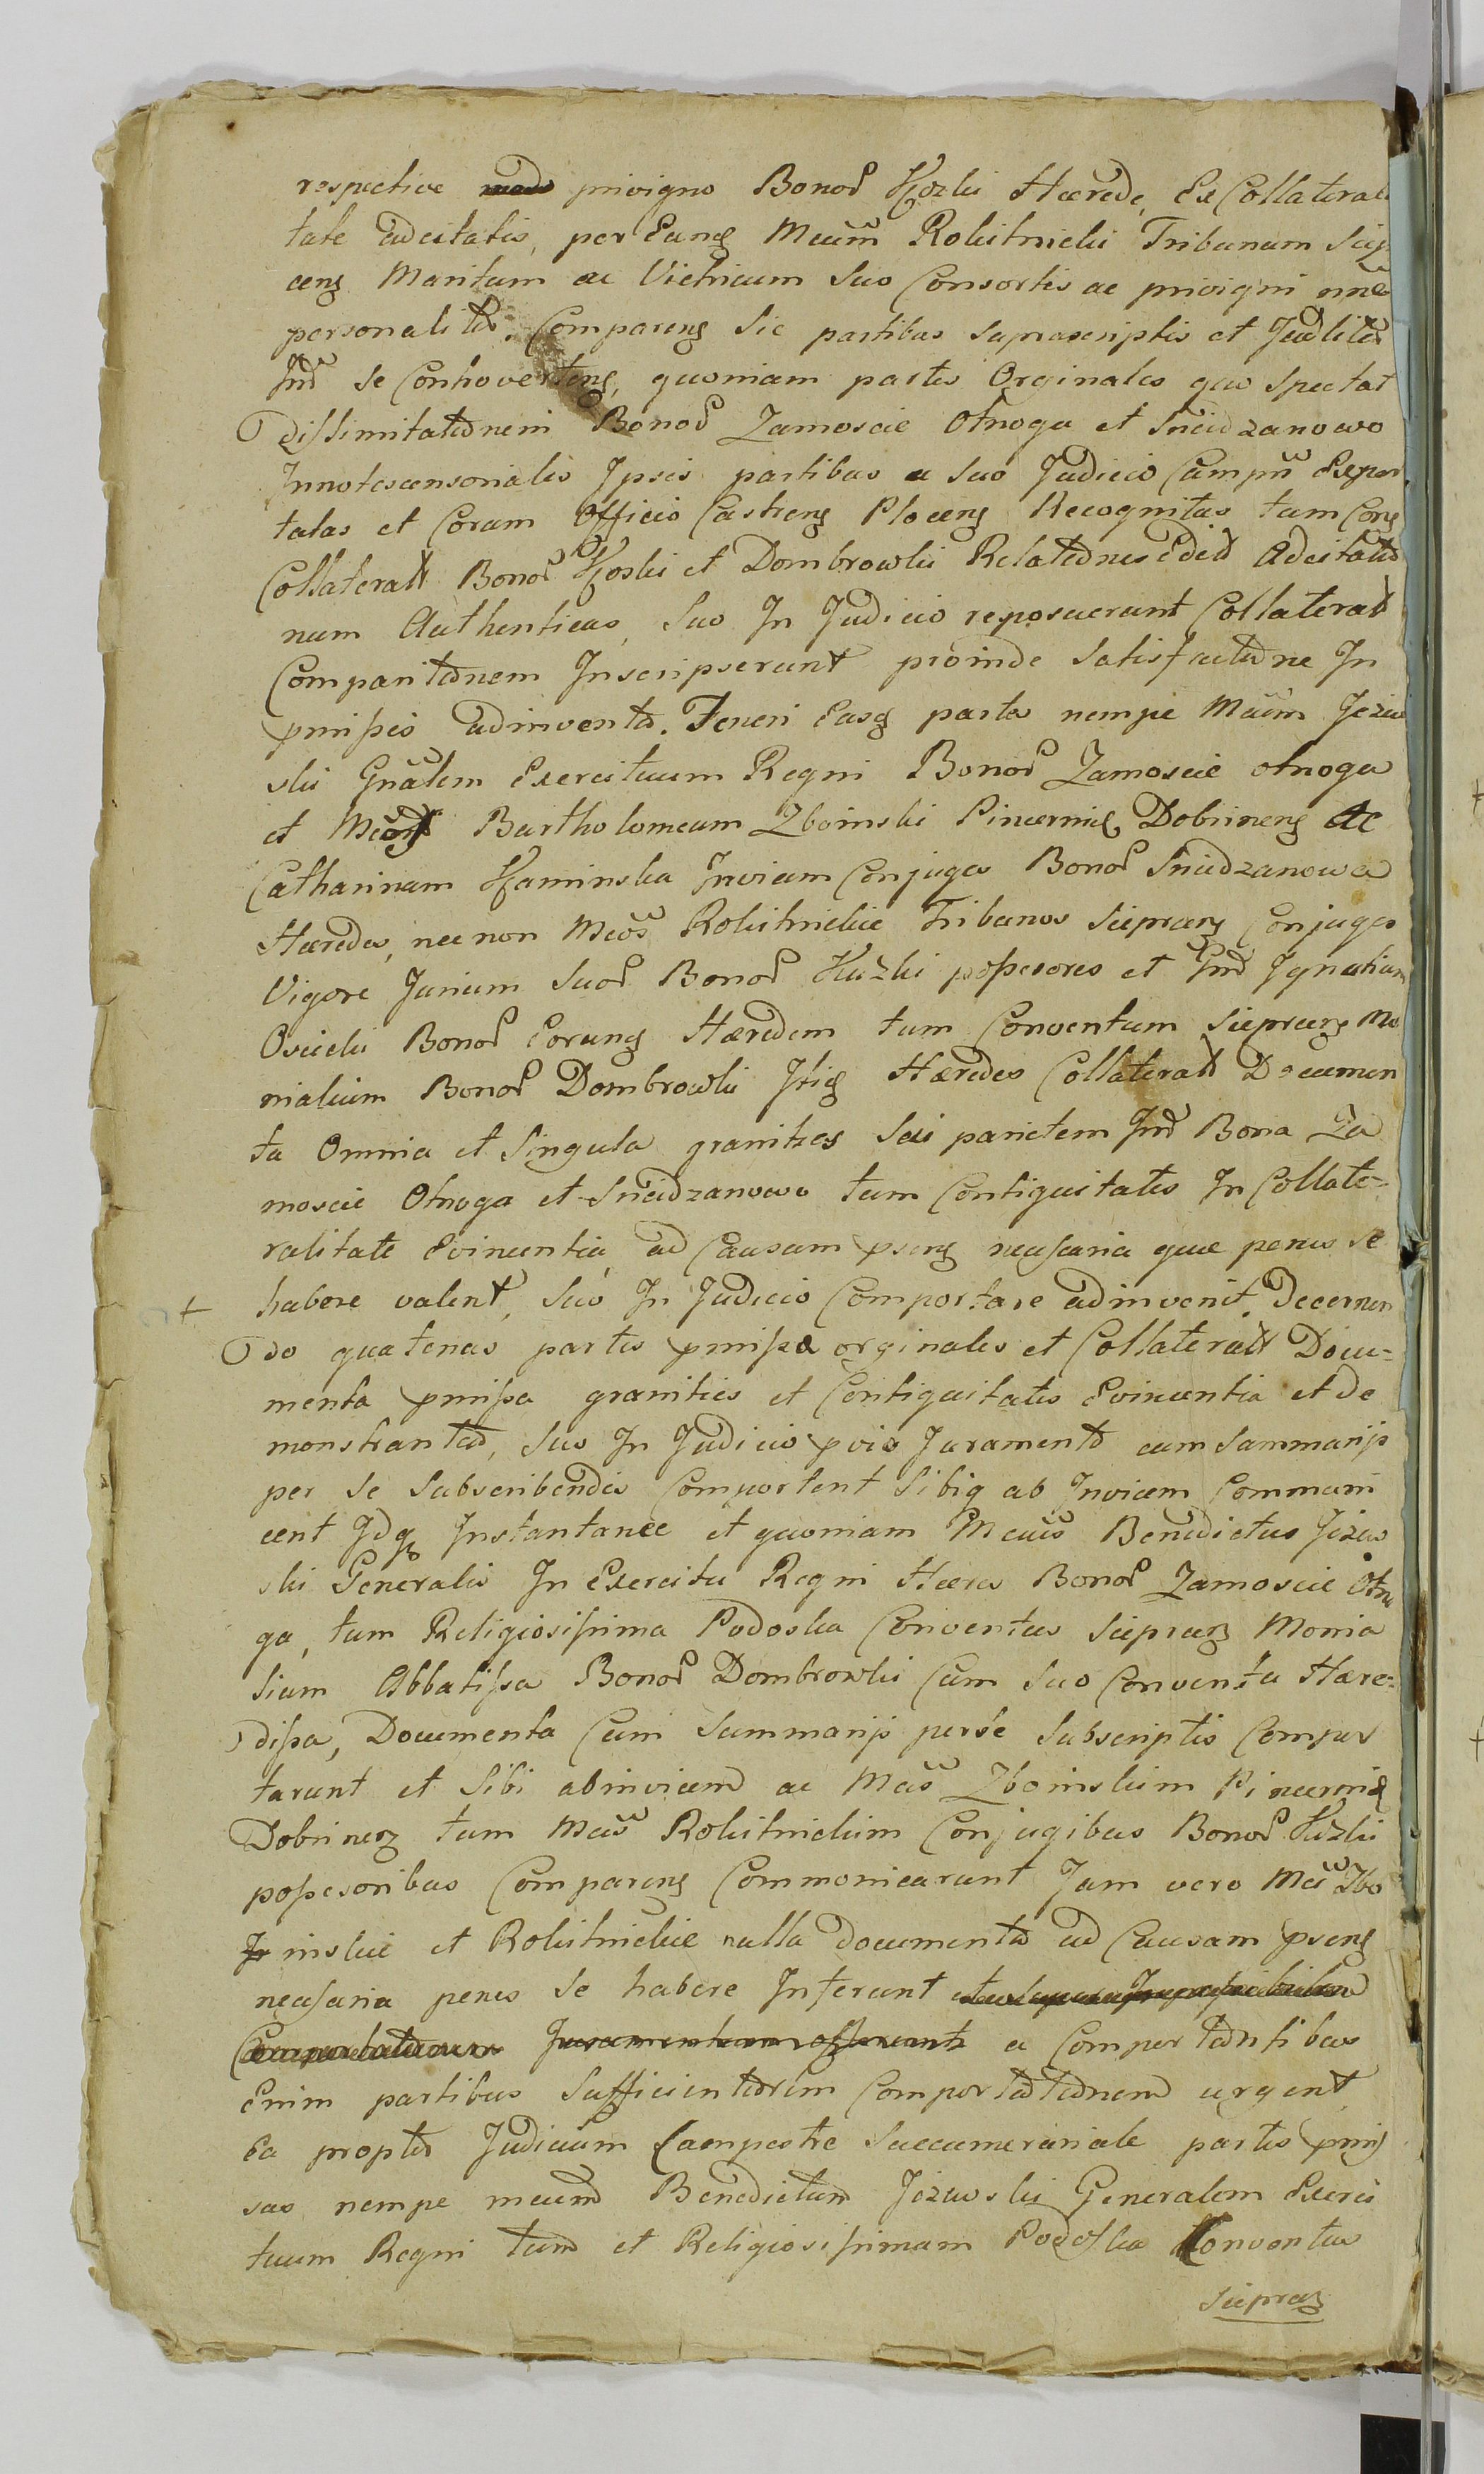 respective privigno Bonoꝝ Kozki Hærede, Ex Collaterali
tate adcitatis, per Eunq Mcum̃ Rokitnicki Tribunum Siep
cens Maritum ac Vitricum Suo Consortis ac privigni nñe
personaliter Comparens Sic partibus suprascriptis et Judliter
Inđ se Controvertens, quoniam partes Orginales quo Spectat
dissimitationem Bonoꝝ Zamoscie Otnoga et Sniedzanowo
Innotescensoriales Ipsis partibus a Suo Judicio Campři Expor
tatas et Coram Officio Castrens Plocens Recognitas tum Cons
Collaterałł Bonoꝝ Kozki et Dombrowki Relationes Edič Adcitatio
num Authenticas, Suo In Judicio reposuerunt Collaterałł
Comparitionem Inscripserunt proinde Satisfactione In
pmissis adinventa. Teneri Easq partes nempe Mcum̃ Jezew
ski Gñalem Exercituum Regni Bonoꝝ Zamoscie otnoga
et Bartholomeum Zboinski Pincernię Dobrinens ac
Catharinam Kaminska Invicem Conjuges Bonoꝝ Sniedzanowa
Hæredes, nec non Mcos̃ Rokitnickie Tribunos Sieprcens Conjuges
Vigore Jurium Suoꝝ Bonoꝝ Kuzki possesores et Gnđ Ignatium
Osiecki Bonoꝝ Eorunq Hæredem tum Conventum Sieprcens Mo
nialium Bonoꝝ Dombrowki Itiq Hæredes Collaterałł Documen
ta Omnia et Singula granities Seu parietem Inđ Bona Za
moscie Otnoga et Sniedzanowo tum Contiguitates In Collate=
ralitate Evincentia, ad Causam psens necessaria quæ penes se
+ habere valent, Suo In Judicio Comportare adinvenit. Decernen
do quatenus partes pmissæ orginales et Collaterałł Docu=
menta pmissa granities et Contiguitates Evincentia et de
monstrantia, Suo In Judicio pvio Juramento cum Summarijs
per se Subscribendis Comportent Sibiq ab Invicem Communi
cent Idq Instantanee et quoniam Mcus̃ Benedictus Jezew
ski Generalis In Exercitu Regni Hæres Bonoꝝ Zamoscie Otno
ga, tum Religiosissima Podoska Conventus Sieprcens Monia
lium Abbatissa Bonoꝝ Dombrowki Cum Suo Conventu Hære=
dissa, Documenta Cum Summarijs perse Subscriptis Compor
tarunt et Sibi abinvicem ac Mcis̃ Zboinskim Pincernię
Dobrinens tum Mcis̃ Rokitnickim Conjugibus Bonoꝝ Kuzki
possesoribus Comparens Commonicarunt Jam vero Mci͂ Zbo
inskie et Rokitnickie nulla documenta ad Causam psens
necessaria penes se habere Inferunt
Juramentum offerunt a Comportantibus
Enim partibus Sufficientiorem Comportationem urgent
Ea propter Judicium Campestre Succamerariale partes pmis
sas nempe mcum Benedictum Jezewski Generalem Exerci
tuum Regni tum et Religiosissimam Podoska Conventus
Sieprcens